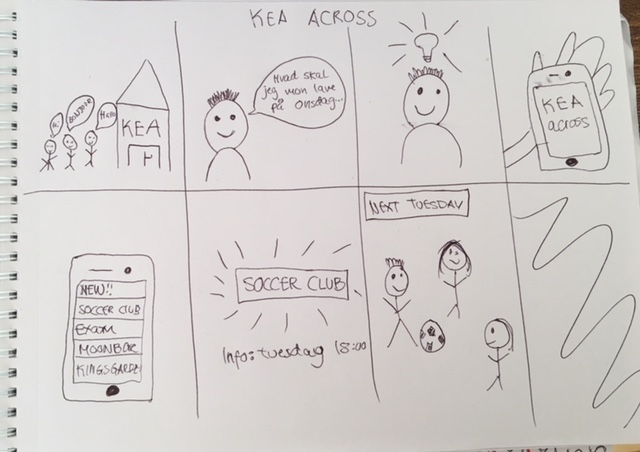 KEA ACROSS
Hi
BONJOUR
Hej
KEA
Hvad skal
jeg mon lave
på onsdag...
KEA
across
NEW!!
SOCCER CLUB
EXCOM
MOONBAR
KINGSGARDEN
SOCCER CLUB
Info: tuesdag 18:00
NEXT TUESDAY